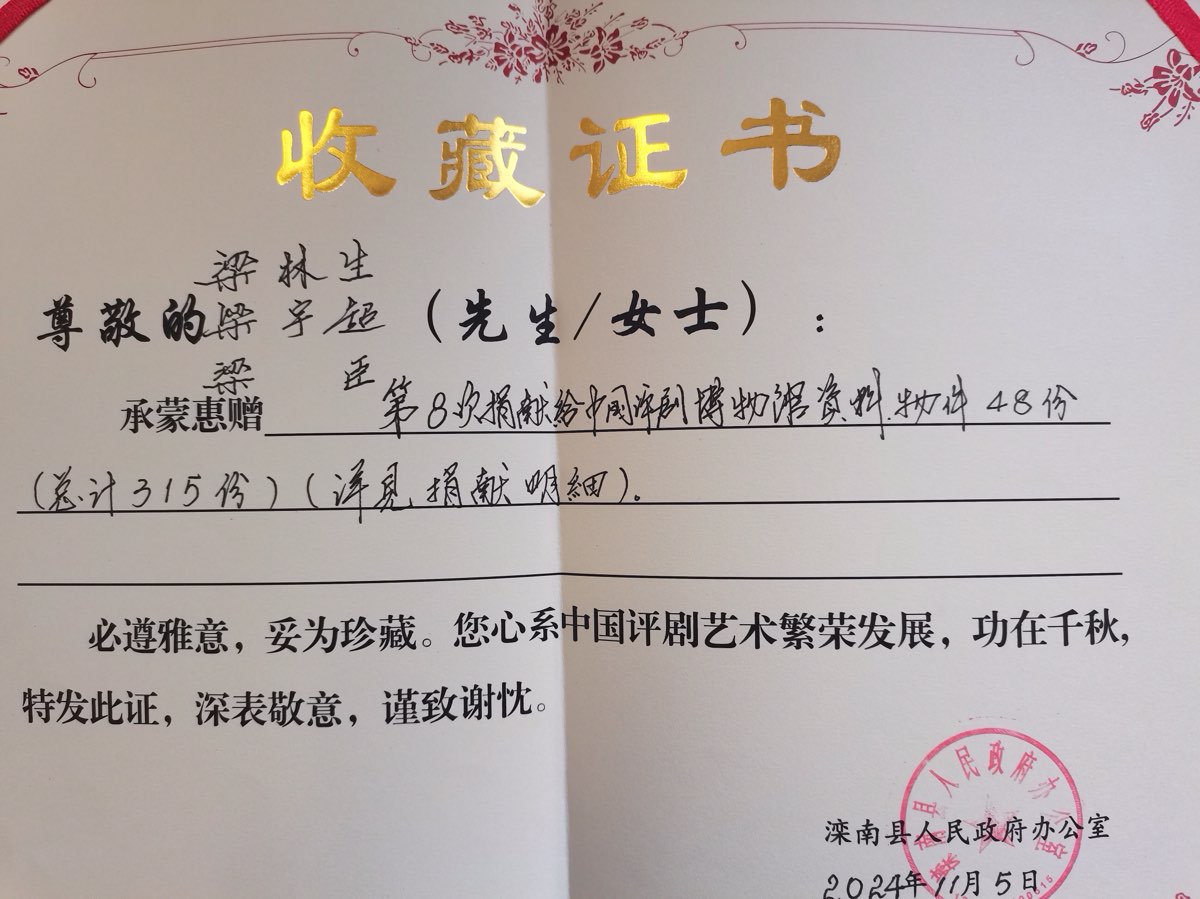 收藏证书
梁林生
尊敬的梁宇超（先生/女士）：
梁 臣
承蒙惠赠 第8次捐献给中国评剧博物馆资料.物件48份
(总计315份)(详见捐献明细)。
必遵雅意，妥为珍藏。您心系中国评剧艺术繁荣发展，功在千秋，
特发此证，深表敬意，谨致谢忱。
滦南县人民政府办公室
滦南县人民政府办公室
2024年11月5日